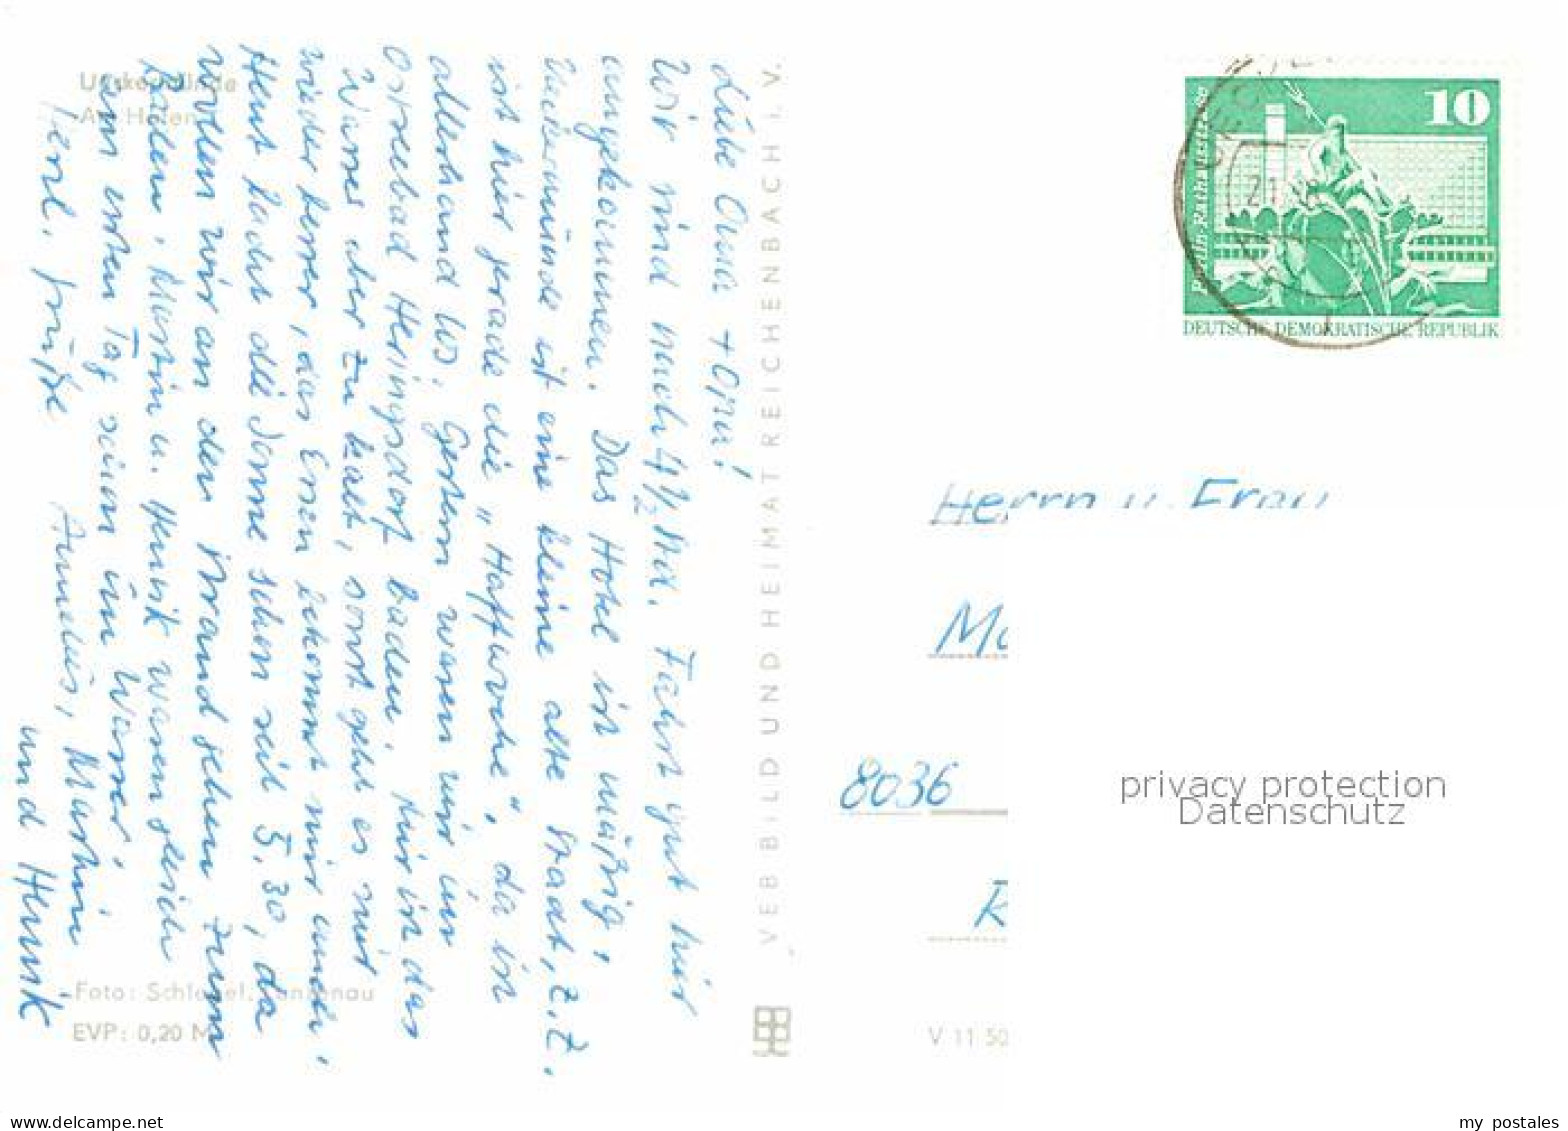 Ueckermünde
Am Hafen
Liebe Oma + Opa!
Wir sind nach 4 1/2 Std. Fahrt gut hier
angekommen. Das Hotel ist mäßig,
Ueckermünde ist eine kleine alte Stadt, z. Z.
ist hier gerade die "Haffwoche", da ist
allerhand los. Gestern waren wir im
Ostseebad Heringsdorf baden. Mir ist das
Wasser aber zu kalt, sonst geht es mir
wieder besser, das Essen bekommt mir auch.
Heut lacht die Sonne schon seit 5.30, da
wollen wir an den Strand gehen zum
Baden, Martin u. Henrik waren gleich
am ersten Tag schon im Wasser.
Herzl. Grüße Annelies, Martin
und Henrik
Foto: Schlegel,
EVP: 0,20 M
VEB BILD UND HEIMAT REICHENBACH I. V.
V 11 50
10
DEUTSCHE DEMOKRATISCHE REPUBLIK
Herrn u. Frau
8036
privacy protection
Datenschutz
my postales